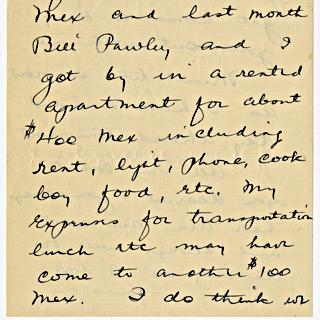 Mex and last month
Bill Pawley and I
got by in a rented
apartment for about
$400 Mex including
rent, light, phone, cook
boy food, etc. My
expenses for transportation
lunch etc may have
come to another $100
Mex. I do think we